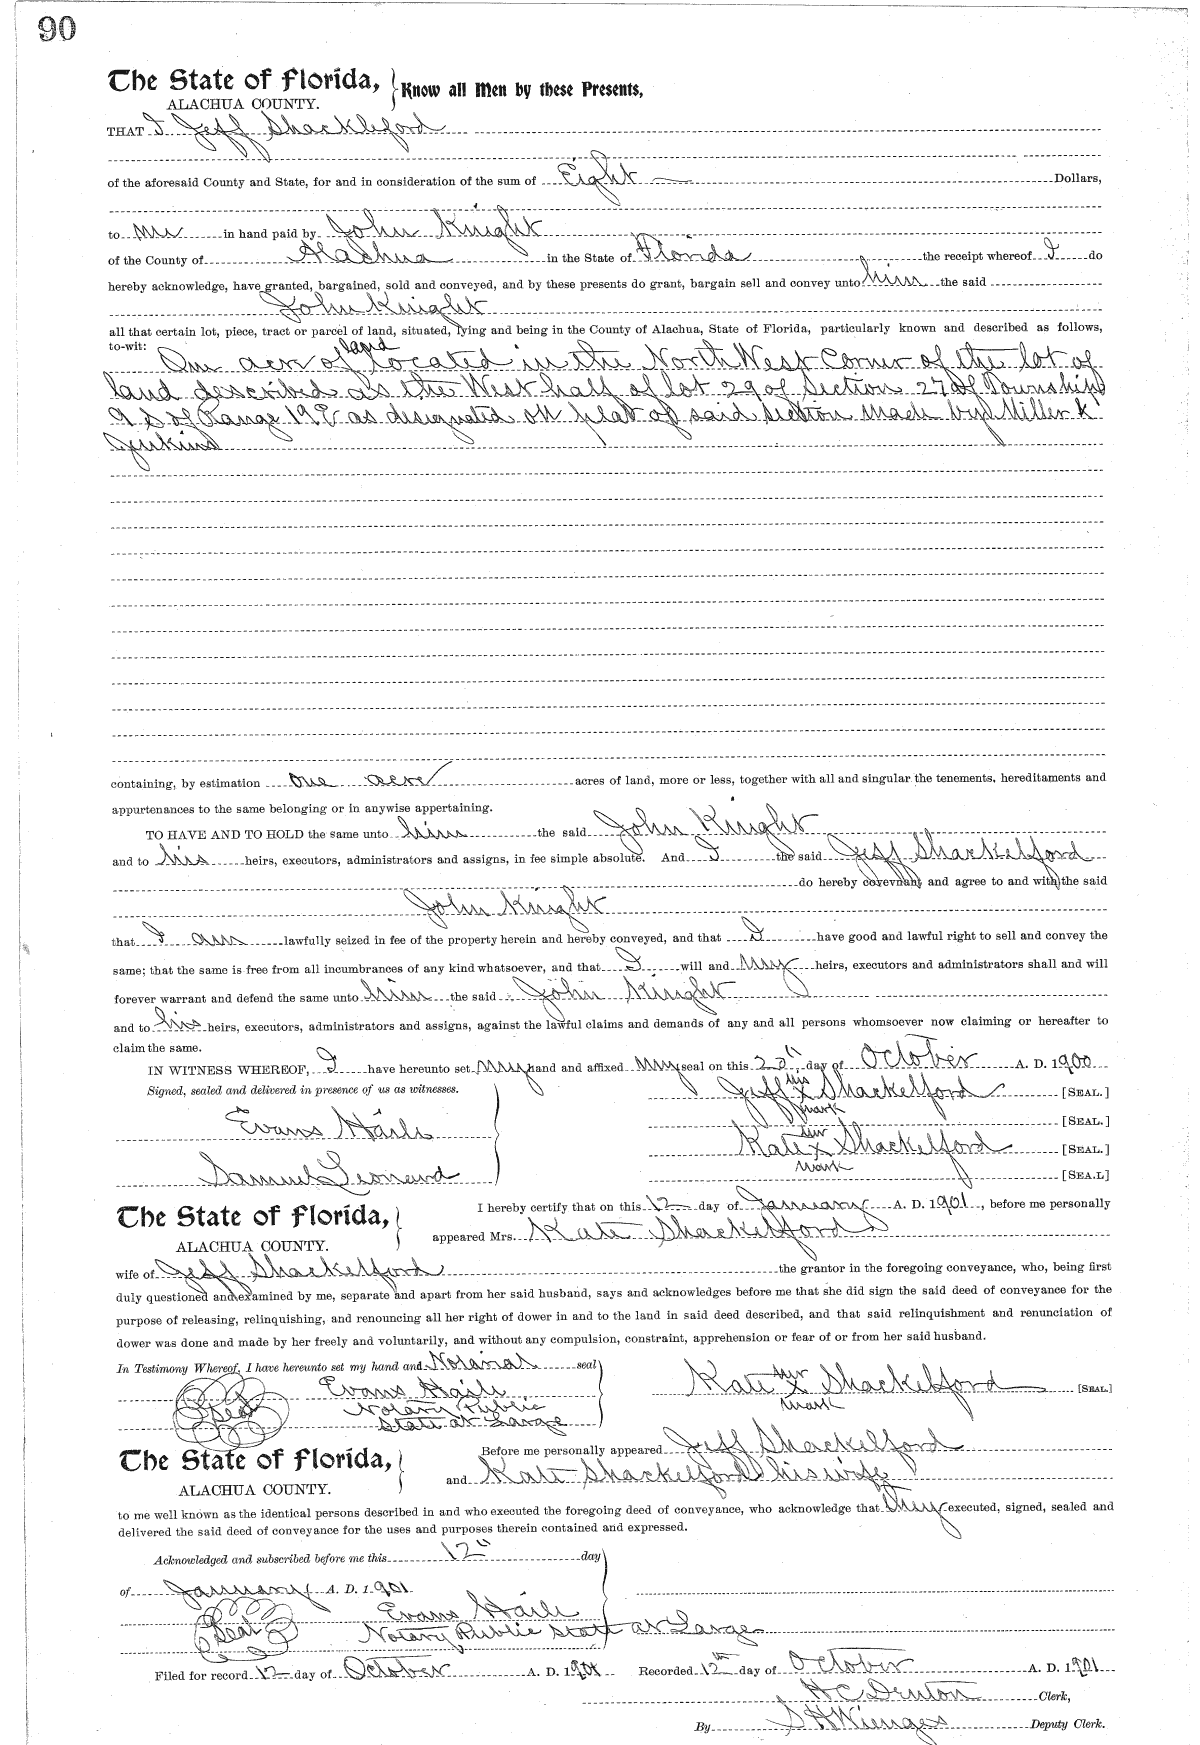 90
The State of Florida, Know all Men by these Presents,
ALACHUA COUNTY.
THAT I Jeff Shackleford
of the aforesaid County and State, for and in consideration of the sum of Eight Dollars,
to me in hand paid by John Knight
of the County of Alachua in the State of Florida the receipt whereof I do
hereby acknowledge, have granted, bargained, sold and conveyed, and by these presents do grant, bargain sell and convey unto him the said
John Knight
all that certain lot, piece, tract or parcel of land, situated, lying and being in the County of Alachua, State of Florida, particularly known and described as follows,
to-wit:
One acre of land located in the North West Corner of the lot of
land described as the West half of lot 29 of Section 27 of Township
9 S of Range 19 E as designated on plat of said section made by Miller K
Jenkins
containing, by estimation one acre acres of land, more or less, together with all and singular the tenements, hereditaments and
appurtenances to the same belonging or in anywise appertaining.
TO HAVE AND TO HOLD the same unto him the said John Knight
and to his heirs, executors, administrators and assigns, in fee simple absolute. And I the said Jeff Shackelford
do hereby covevnant and agree to and with the said
John Knight
that I am lawfully seized in fee of the property herein and hereby conveyed, and that I have good and lawful right to sell and convey the
same; that the same is free from all incumbrances of any kind whatsoever, and that I will and my heirs, executors and administrators shall and will
forever warrant and defend the same unto him the said John Knight
and to his heirs, executors, administrators and assigns, against the lawful claims and demands of any and all persons whomsoever now claiming or hereafter to
claim the same.
IN WITNESS WHEREOF, I have hereunto set my hand and affixed my seal on this day of October A. D. 1900
Signed, sealed and delivered in presence of us as witnesses.
Jeff his x mark Shackelford [SEAL.]
[SEAL.]
Evans Haile
Kate her x mark Shackelford [SEAL.]
Samuel Leonard
[SEA.L]
The State of Florida,
ALACHUA COUNTY.
I hereby certify that on this 12 day of January A. D. 1901, before me personally
appeared Mrs. Kate Shackelford
wife of Jeff Shackelford the grantor in the foregoing conveyance, who, being first
duly questioned and examined by me, separate and apart from her said husband, says and acknowledges before me that she did sign the said deed of conveyance for the
purpose of releasing, relinquishing, and renouncing all her right of dower in and to the land in said deed described, and that said relinquishment and renunciation of
dower was done and made by her freely and voluntarily, and without any compulsion, constraint, apprehension or fear of or from her said husband.
In Testimony Whereof, I have hereunto set my hand and Notarial seal
Kate her x mark Shackelford [SEAL.]
Seal Evans Haile
Notary Public
State at Large
The State of Florida,
ALACHUA COUNTY.
Before me personally appeared Jeff Shackelford
and Kate Shackelford his wife
to me well known as the identical persons described in and who executed the foregoing deed of conveyance, who acknowledge that they executed, signed, sealed and
delivered the said deed of conveyance for the uses and purposes therein contained and expressed.
Acknowledged and subscribed before me this 12" day
of January A. D. 1901
Seal Evans Haile
Notary Public State at Large
Filed for record 12 day of October A. D. 1901 Recorded 12th day of October A. D. 1901
H C Denton Clerk,
By S H Wienges Deputy Clerk.